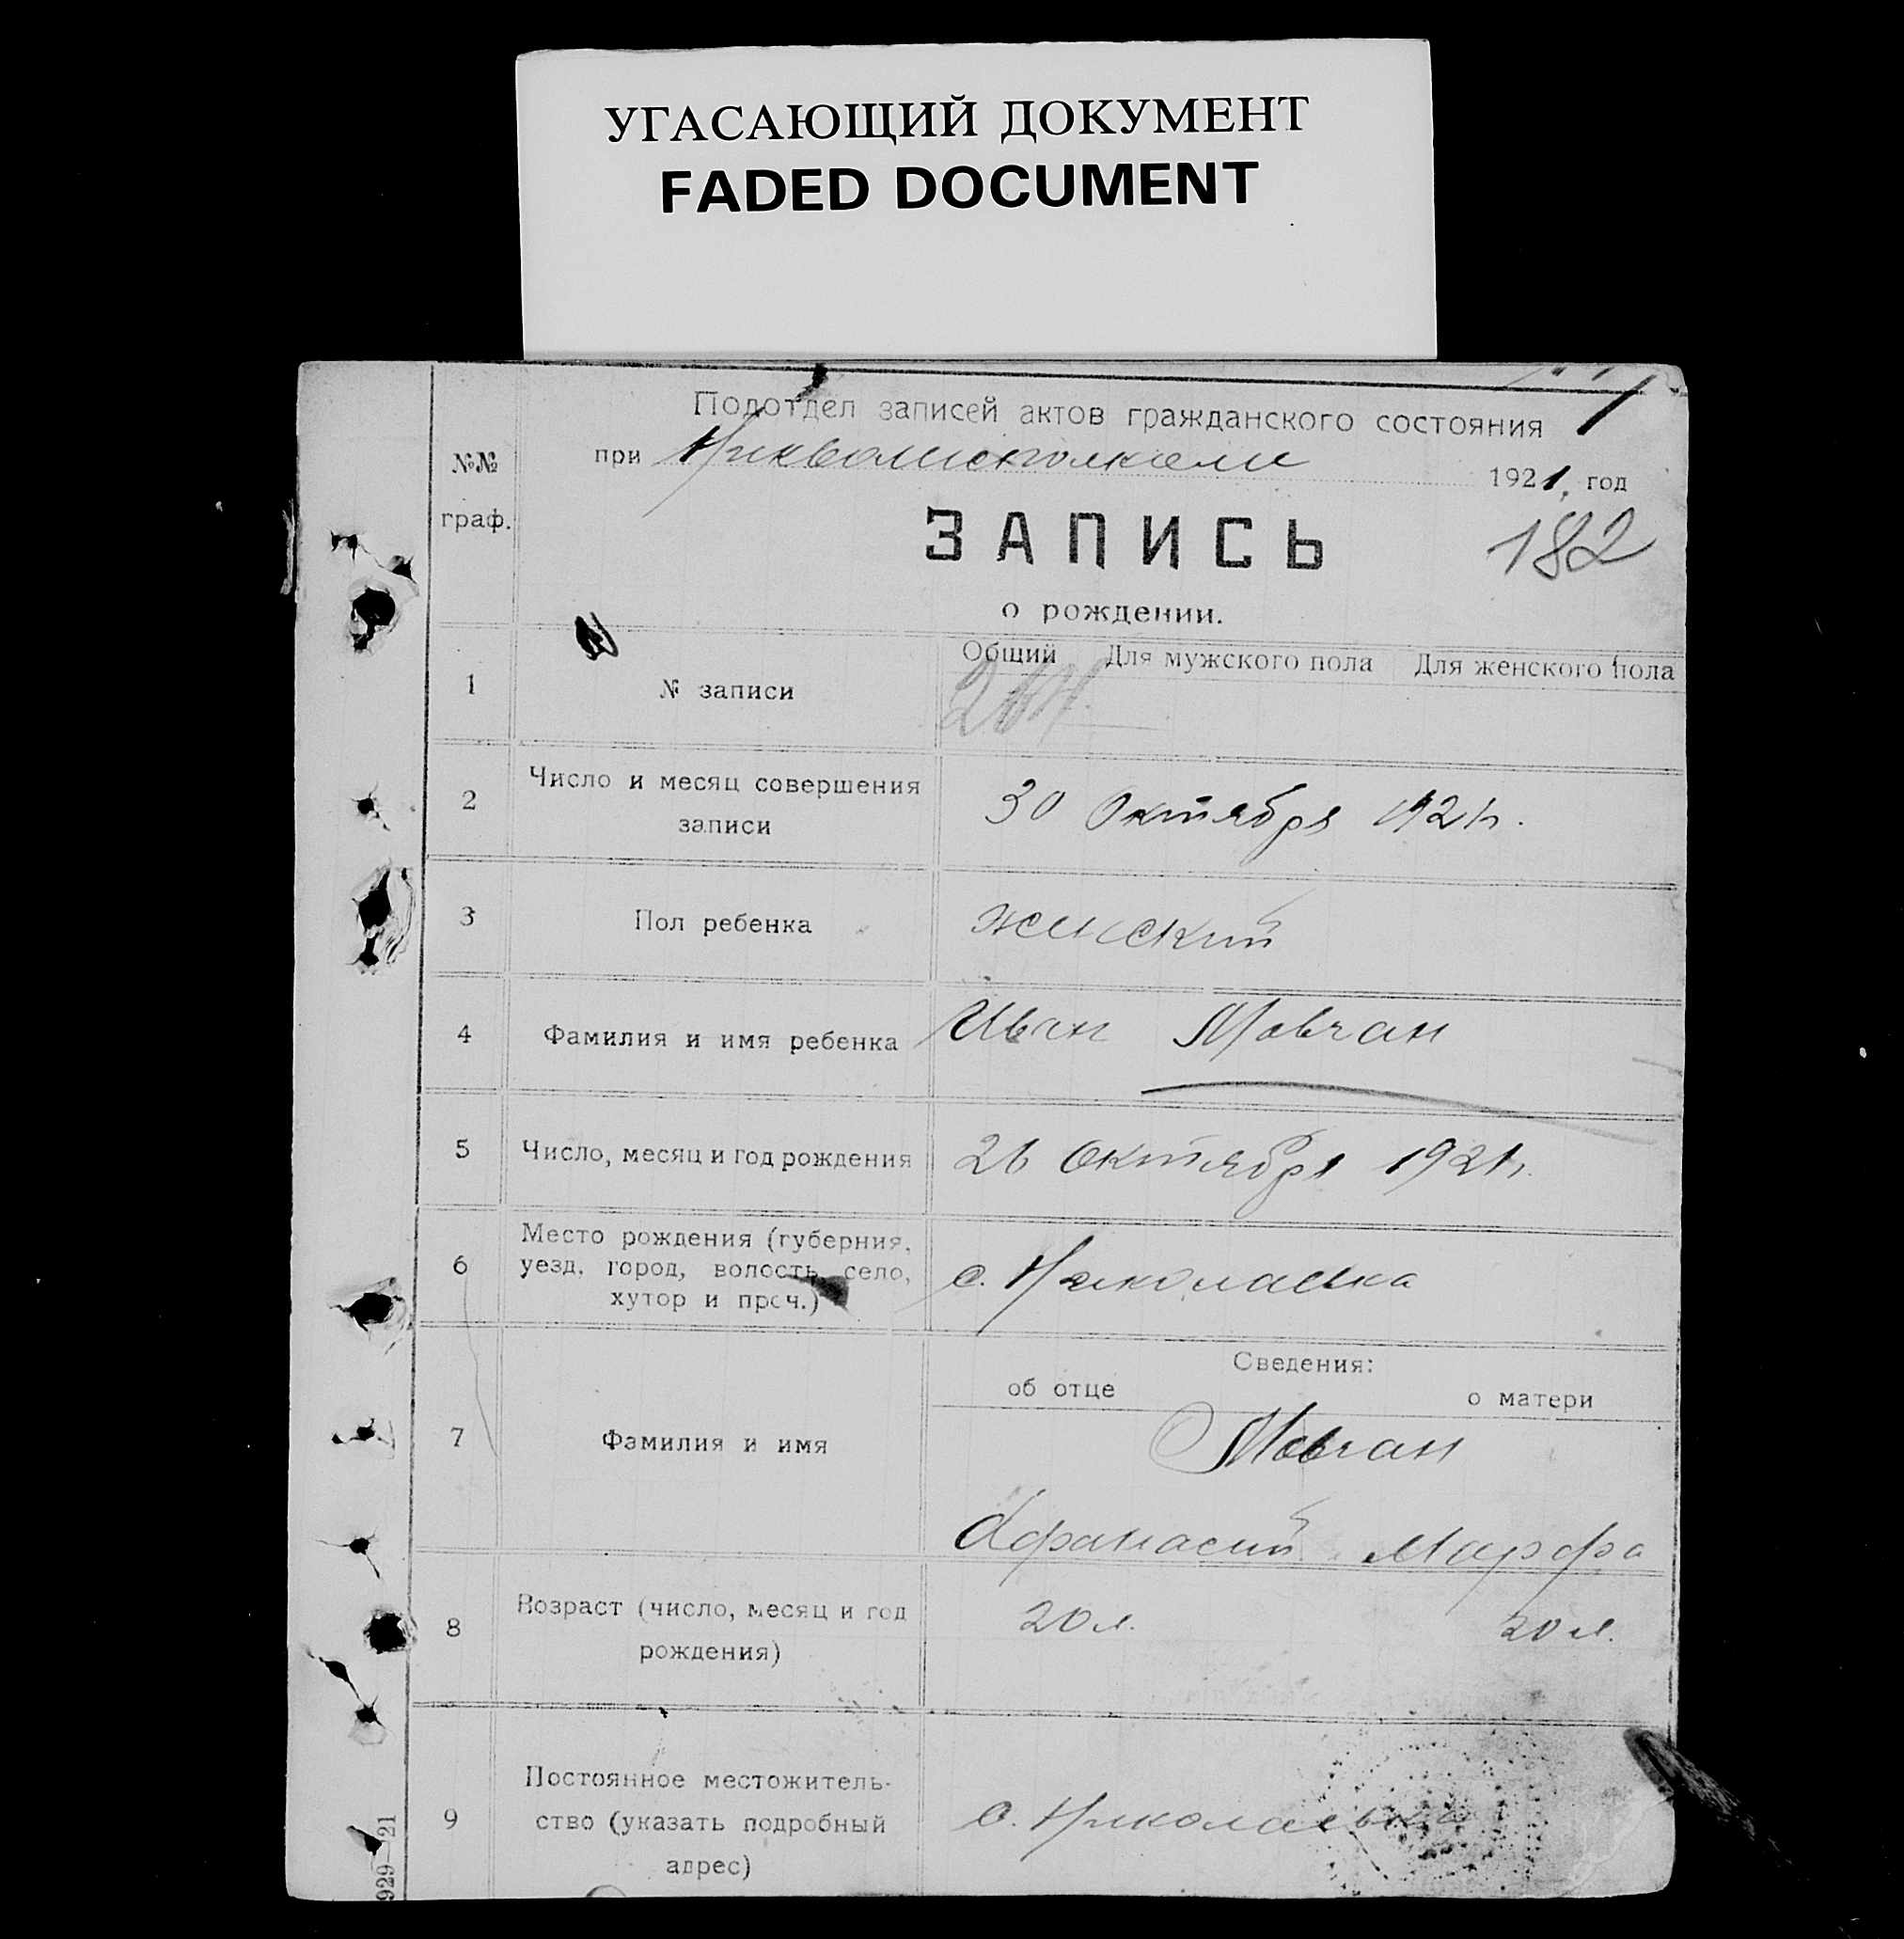 УГАСАЮЩИЙ ДОКУМЕНТ
FADED DOCUMENT
Подотдел записей актов гражданского состояния
№№ граф.
при Никволисполкоме 1921, год
ЗАПИСЬ
182
о рождении.
Общий Для мужского пола Для женского пола
1 № записи
2 Число и месяц совершения
записи
30 Октября 1921г.
3 Пол ребенка женский
4 Фамилия и имя ребенка Иван Мовчан
5 Число, месяц и год рождения 26 Октября 1921г.
Место рождения (губерния,
6 уезд, город, волость, село,
хутор и проч.)
с. Николаевка
Сведения:
об отце о матери
7 Фамилия и имя Мовчан
Афанасий Марфа
8 Возраст (число, месяц и год
рождения)
20 л. 20 л.
Постоянное местожитель-
9 ство (указать подробный
адрес)
с. Николаевка
929—21